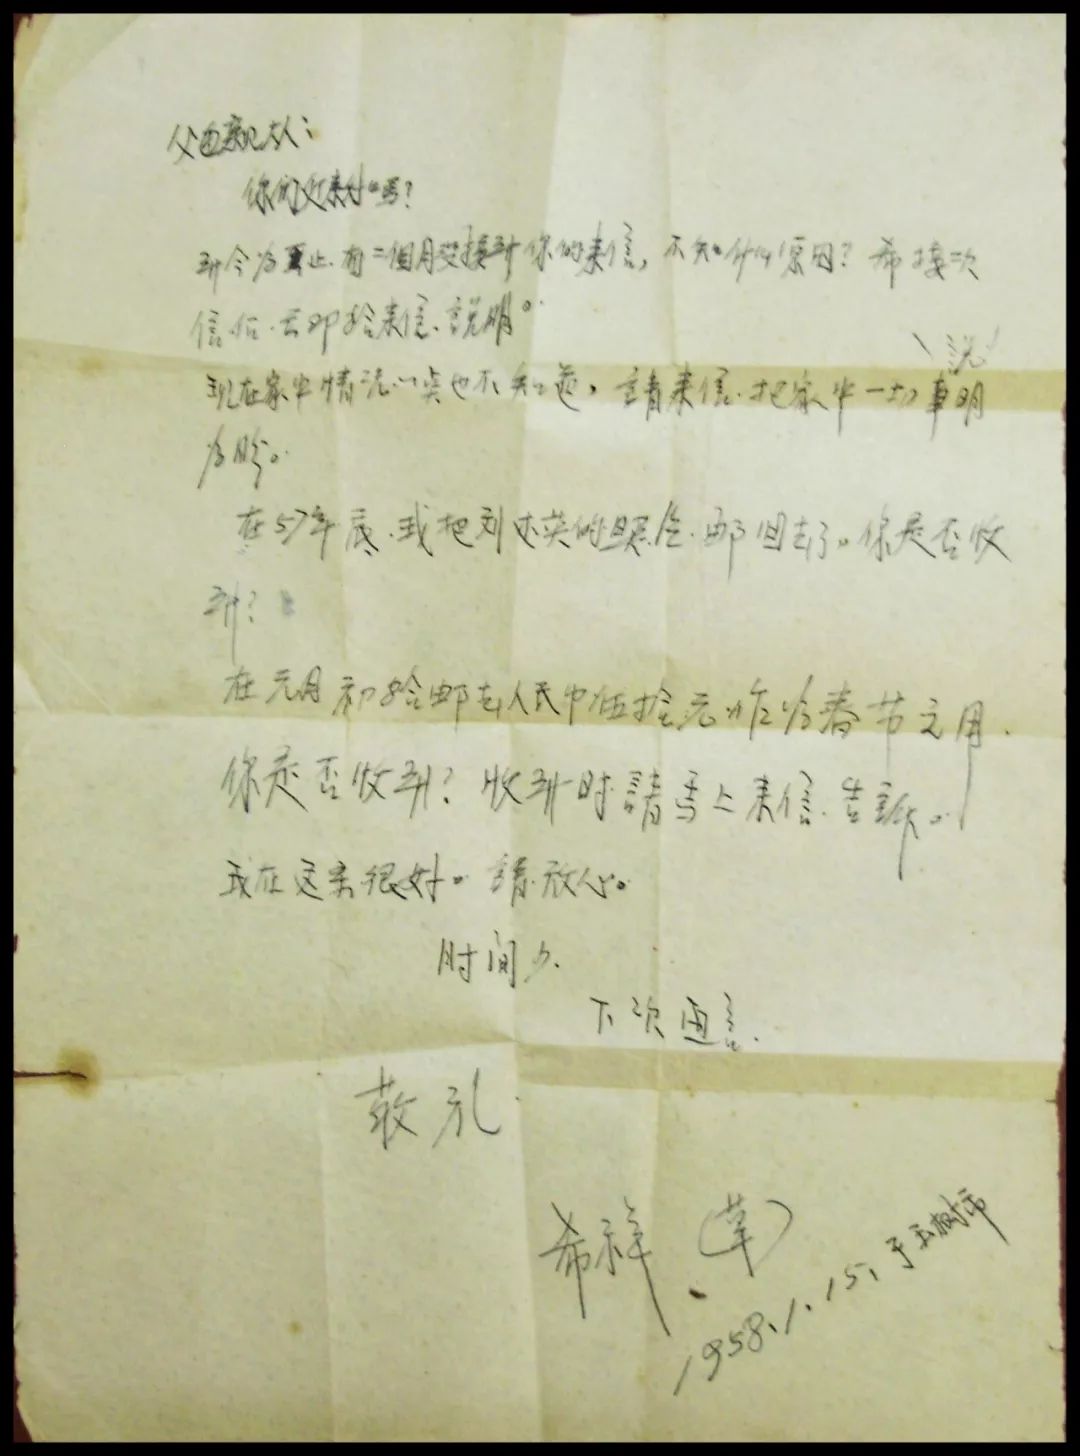 父母亲大人：
你们近来好吗？
到今为止.有二个月没接到你的来信，不知什么原因？希接次
信后.立即给来信.説明。
现在家中情况一点也不知道，請来信.把家中一切事説明
为盼。
在57年底.我把刘 英的照片.邮回去了。你是否收
到？
在元月初给邮去人民币伍拾元.作为春节之用.
你是否收到？收到时請马上来信.告訴。
我在这里很好。請放心。
时间少.
下次再言.
敬礼
希祥.（草）
1958.1.15.于玉树市